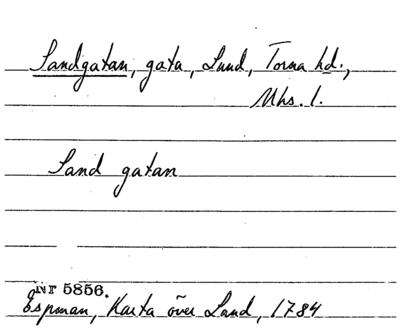 Sandgatan, gata, Lund, Torna hd.,
Mhs. l.
Sand gatan
Nr 5856.
Espman, Karta över Lund, 1784